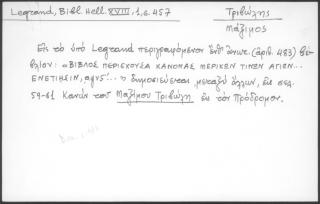 Legrand, Bibl. Hell. XVIII, 1, σ. 457
Τριβώλης
Μάξιμος
Εἰς τὸ ὑπὸ Legrand περιγραφόμενον ἔνθ' ἀνωτ. (ἀριθ. 483) βι-
βλίον: «ΒΙΒΛΟΣ ΠΕΡΙΕΧΟΥΣΑ ΚΑΝΟΝΑΣ ΜΕΡΙΚΩΝ ΤΙΝΩΝ ΑΓΙΩΝ...
ΕΝΕΤΙΗΣΙΝ, δημοσιεύεται μεταξὺ ἄλλων, εἰς σελ.
59-61 Κανὼν τοῦ Μαξίμου Τριβώλη εἰς τὸν Πρόδρομον.